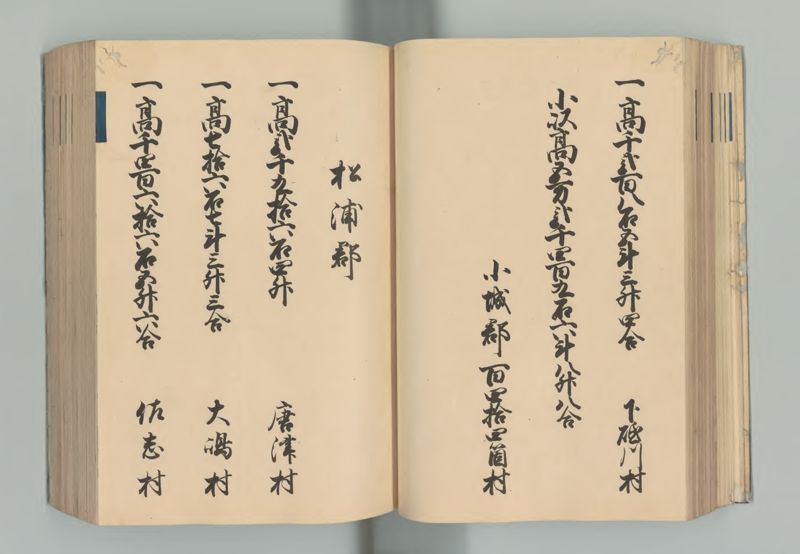 一高千弐百八石五斗三升四合 下砥川村
小以高五万弐千四百九石六斗八升八合
小城郡 百四拾四箇村
松浦郡
一高弐千九拾六石四升 唐津村
一高七拾六石七斗三升三合 大嶋村
一高千四百六拾六石五升六合 佐志村